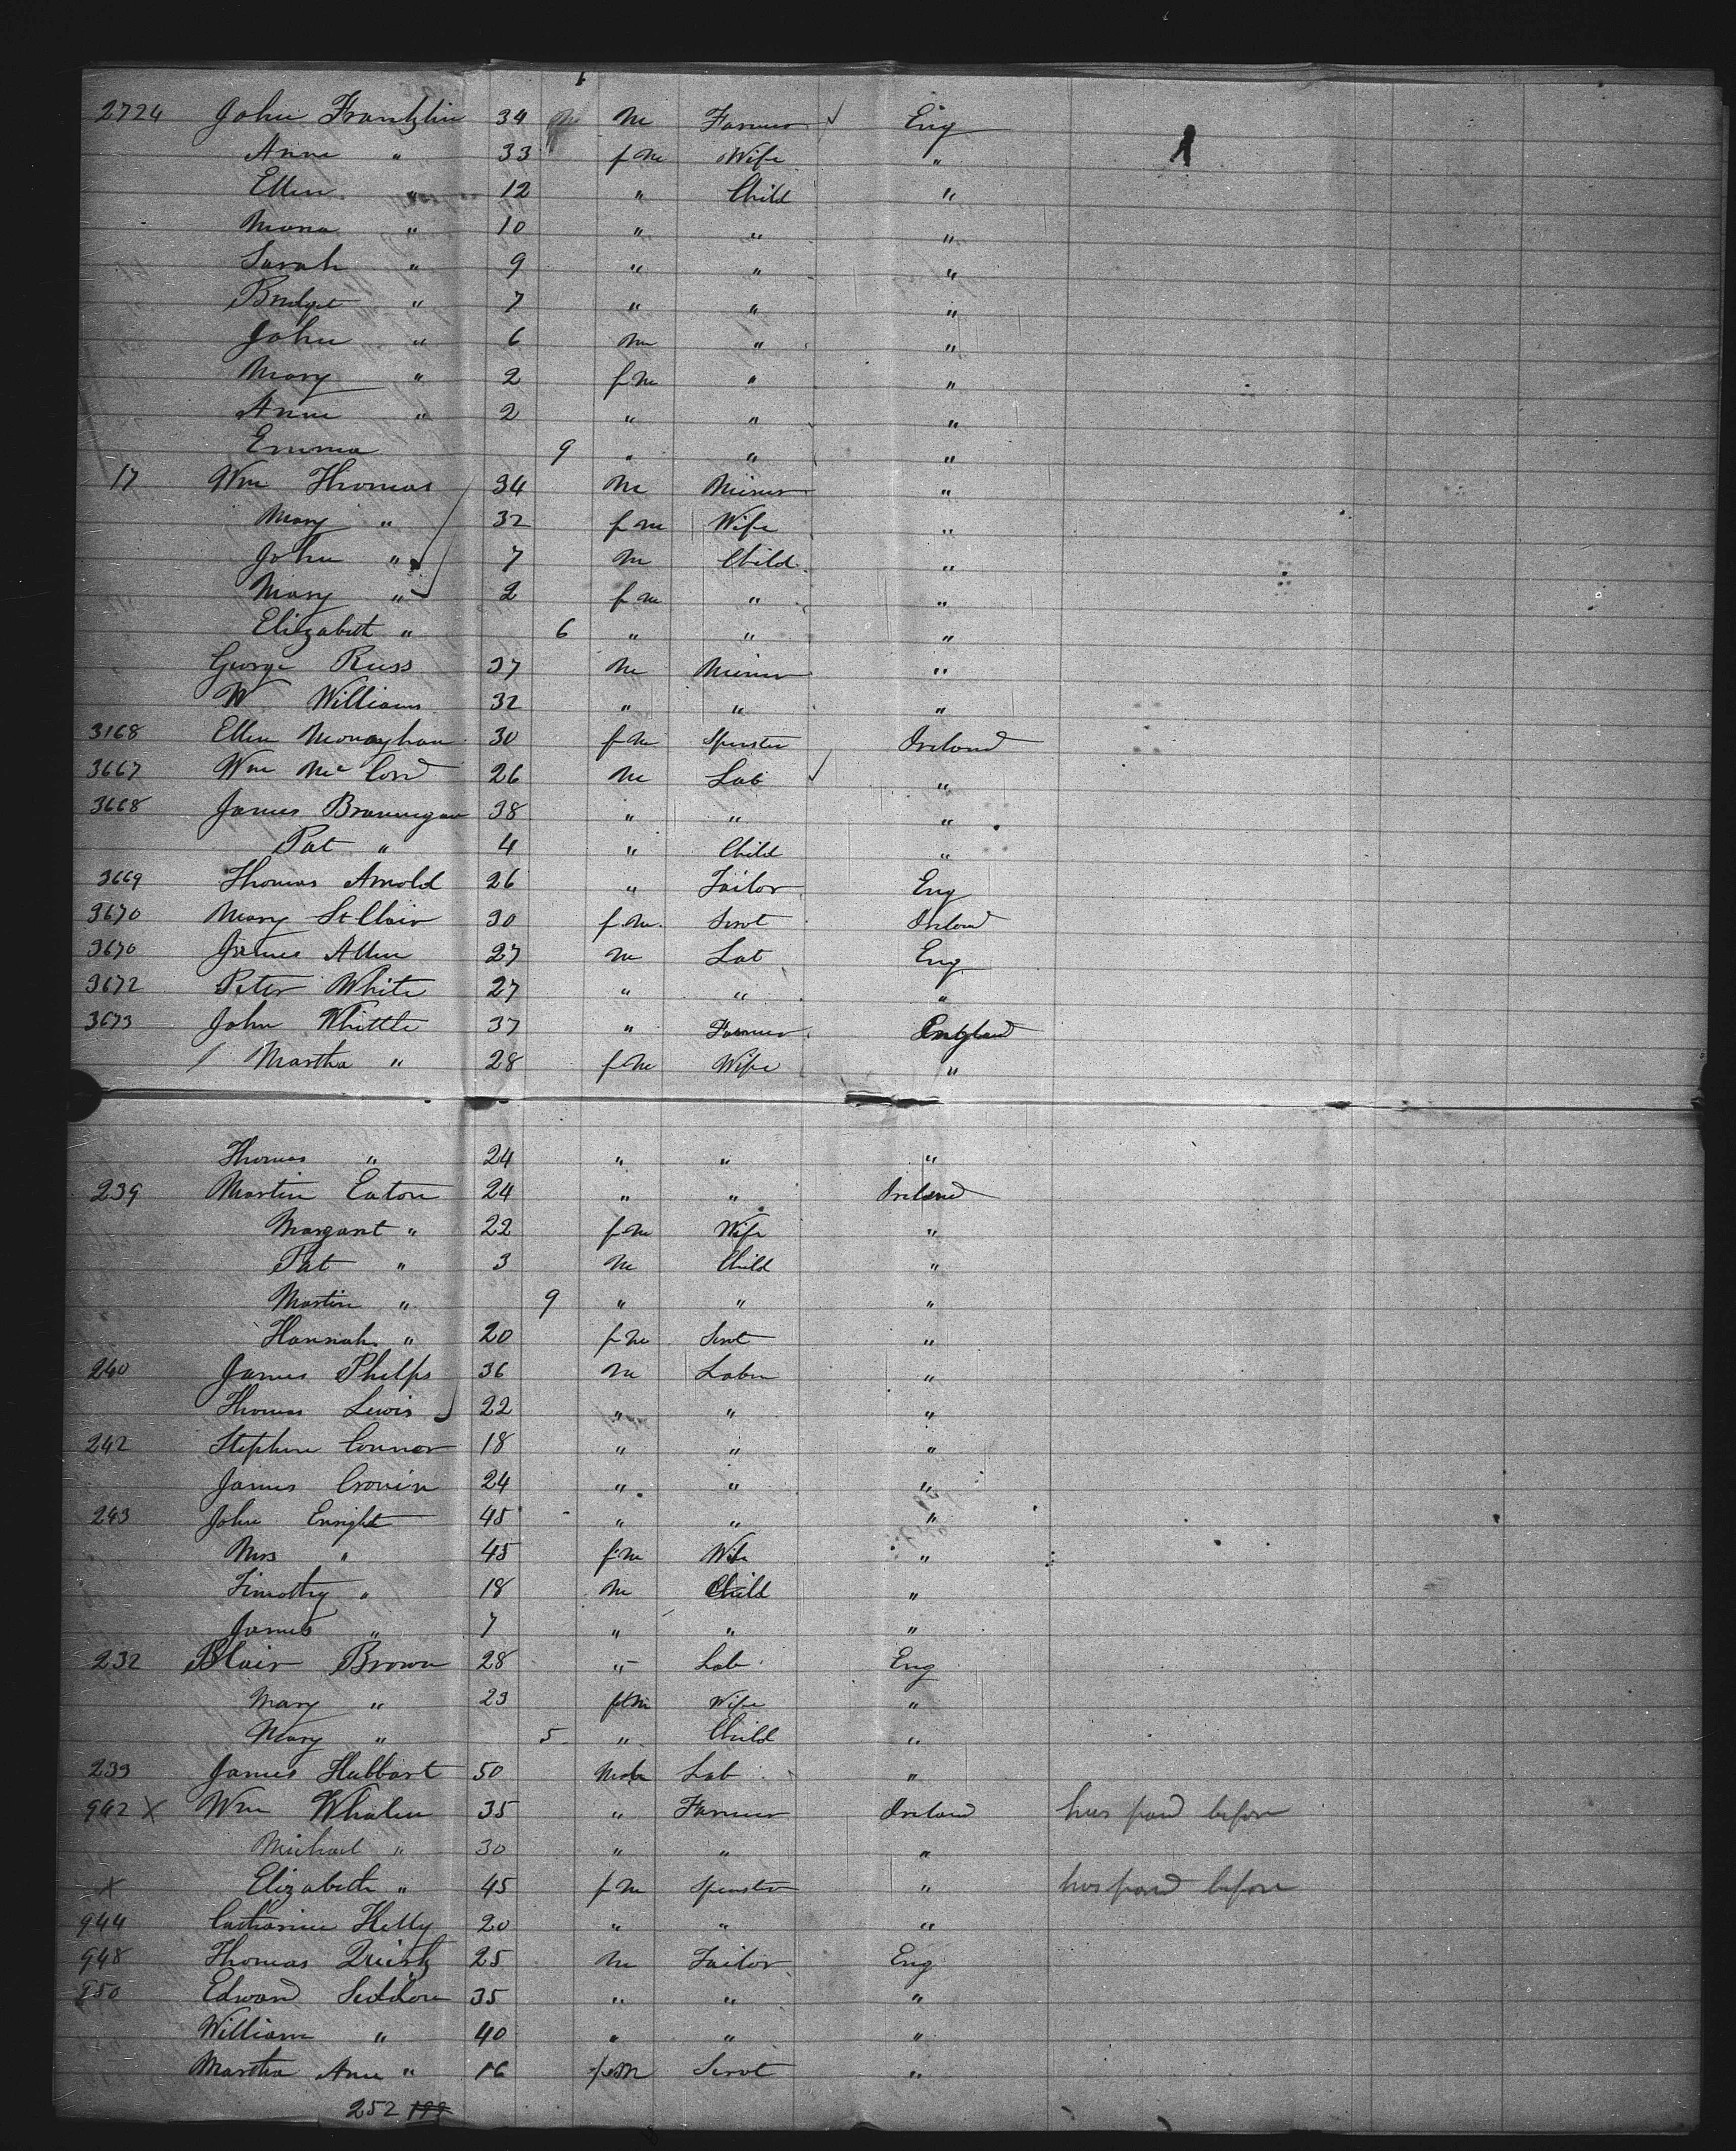 2724 John Franklin 34 M Farmer Eng
Anna " 33 fm Wife "
Ellen " 12 " Child "
Mona " 10 " " "
Sarah " 9 " " "
Bridget " 7 " " "
John " 6 m " "
Mary " 2 fm " "
Anni " 2 " " "
Emma 9 " " "
17 Wm Thomas 34 M Miner "
Mary " 32 fm Wife "
John " 7 M Child "
Mary " 2 fm " "
Elizabeth " 6 " " "
George Russ 37 M Miner "
W Williams 32 " " "
3168 Ellen Monaghan 30 fm Spinster Ireland
3667 Wm Mc Cord 26 M Lab "
3668 James Brannigan 38 " " "
Pat " 4 " Child "
3669 Thomas Arnold 26 " Tailor Eng
3670 Mary St Clair 30 fm Servt Ireland
3670 James Allen 27 M Lab Eng
3672 Peter White 27 " " "
3673 John Whittle 37 " Farmer England
/ Martha " 28 fm Wife "
Thomas " 24 " " "
239 Martin Eaton 24 " " Ireland
Margaret " 22 fm Wife "
Pat " 3 M Child "
Martin " 9 " " "
Hannah " 20 fm Servt "
240 James Phelps 36 M Labr "
Thomas Lewis 22 " " "
242 Stephen Connor 18 " " "
James Cronin 24 " " "
243 John Enright 45 " " "
Mrs " 45 fm Wife "
Timothy " 18 M Child "
James " 7 " " "
232 Blair Brown 28 " Lab Eng
Mary " 23 fm Wife "
Mary " 5 " Child "
233 James Hubbart 50 Male Lab "
942 X Wm Whalen 35 " Farmer Ireland has paid before
Michael " 30 " " "
X Elizabeth " 45 fm Spinster " has paid before
944 Catharine Kelly 20 " " "
948 Thomas 25 M Tailor Eng
950 Edward Seddon 35 " " "
William " 40 " " "
Martha Ann " 16 fm Servt "
252 199